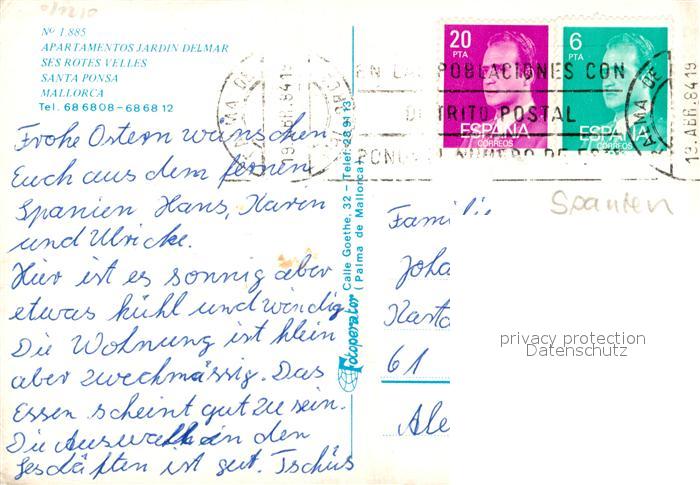 Nº 1.885
APARTAMENTOS JARDIN DELMAR
SES ROTES VELLES
SANTA PONSA
MALLORCA
Tel. 686808-686812
Frohe Ostern wünschen
Euch aus dem fernen
Spanien Hans, Karen
und Ulricke.
Hier ist es sonnig aber
etwas kühl und windig
Die Wohnung ist klein
aber zweckmässig. Das
Essen scheint gut zu sein.
Die Auswahl in den
Gesdäften ist gut. Tschüs
Fotoperator Calle Goethe, 32 - (Telef. 28 91 13)
(Palma de Mallorca)
20
PTA
ESPAÑA
CORREOS
6
PTA
ESPAÑA
CORREOS
EN LAS POBLACIONES CON
DISTRITO POSTAL
NUMERO DE
PALMA DE
19.ABR.84 19
19.ABR.84 19
Spanien
Famili
Joha
Kasta
61
Ale
privacy protection
Datenschutz